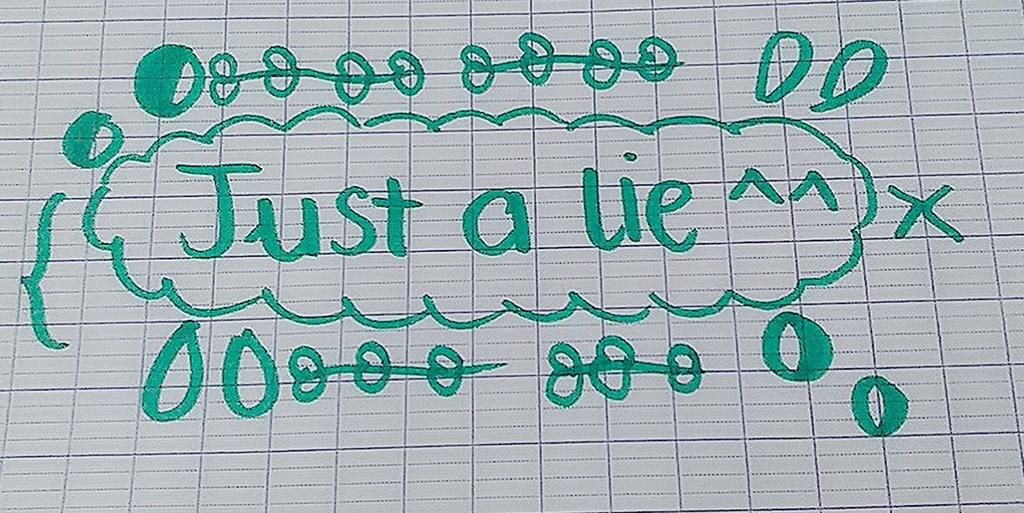 Just a lie ^^